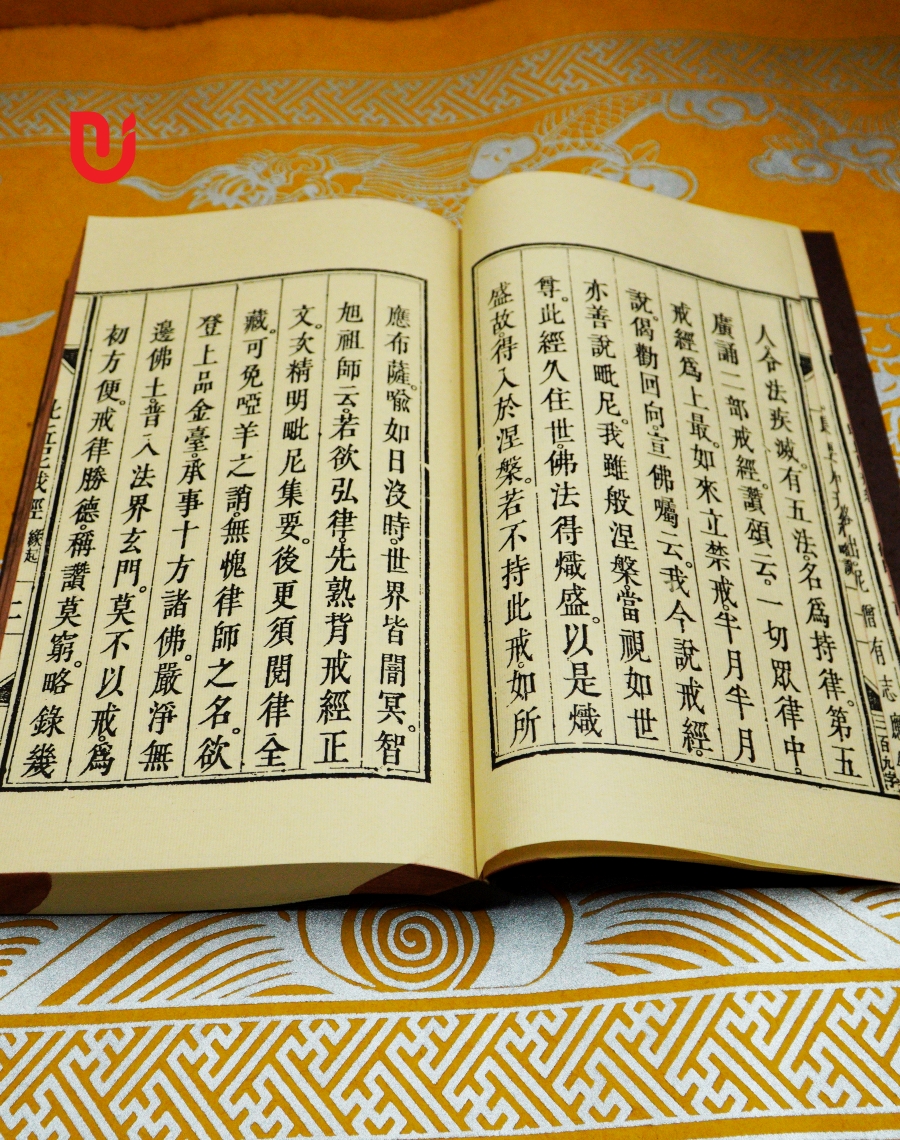 人令法疾滅。有五法。名爲持律。第五
廣誦二部戒經。讚頌云。一切眾律中。
戒經爲上最。如來立禁戒。半月半月
說。偈勸回向。宣佛囑云。我今說戒經。
亦善說毗尼。我雖般涅槃。當視如世
尊。此經久住世。佛法得熾盛。以是熾
盛故。得入於涅槃。若不持此戒。如所
應布薩。喻如日沒時。世界皆闇冥。智
旭祖師云。若欲弘律。先熟背戒經正
文。次精明毗尼集要。後更須閱律全
藏。可免啞羊之誚。無愧律師之名。欲
登上品金臺。承事十方諸佛。嚴淨無
邊佛土。普入法界玄門。莫不以戒。爲
初方便。戒律勝德。稱讚莫窮。略錄幾
戒經 緣起 二